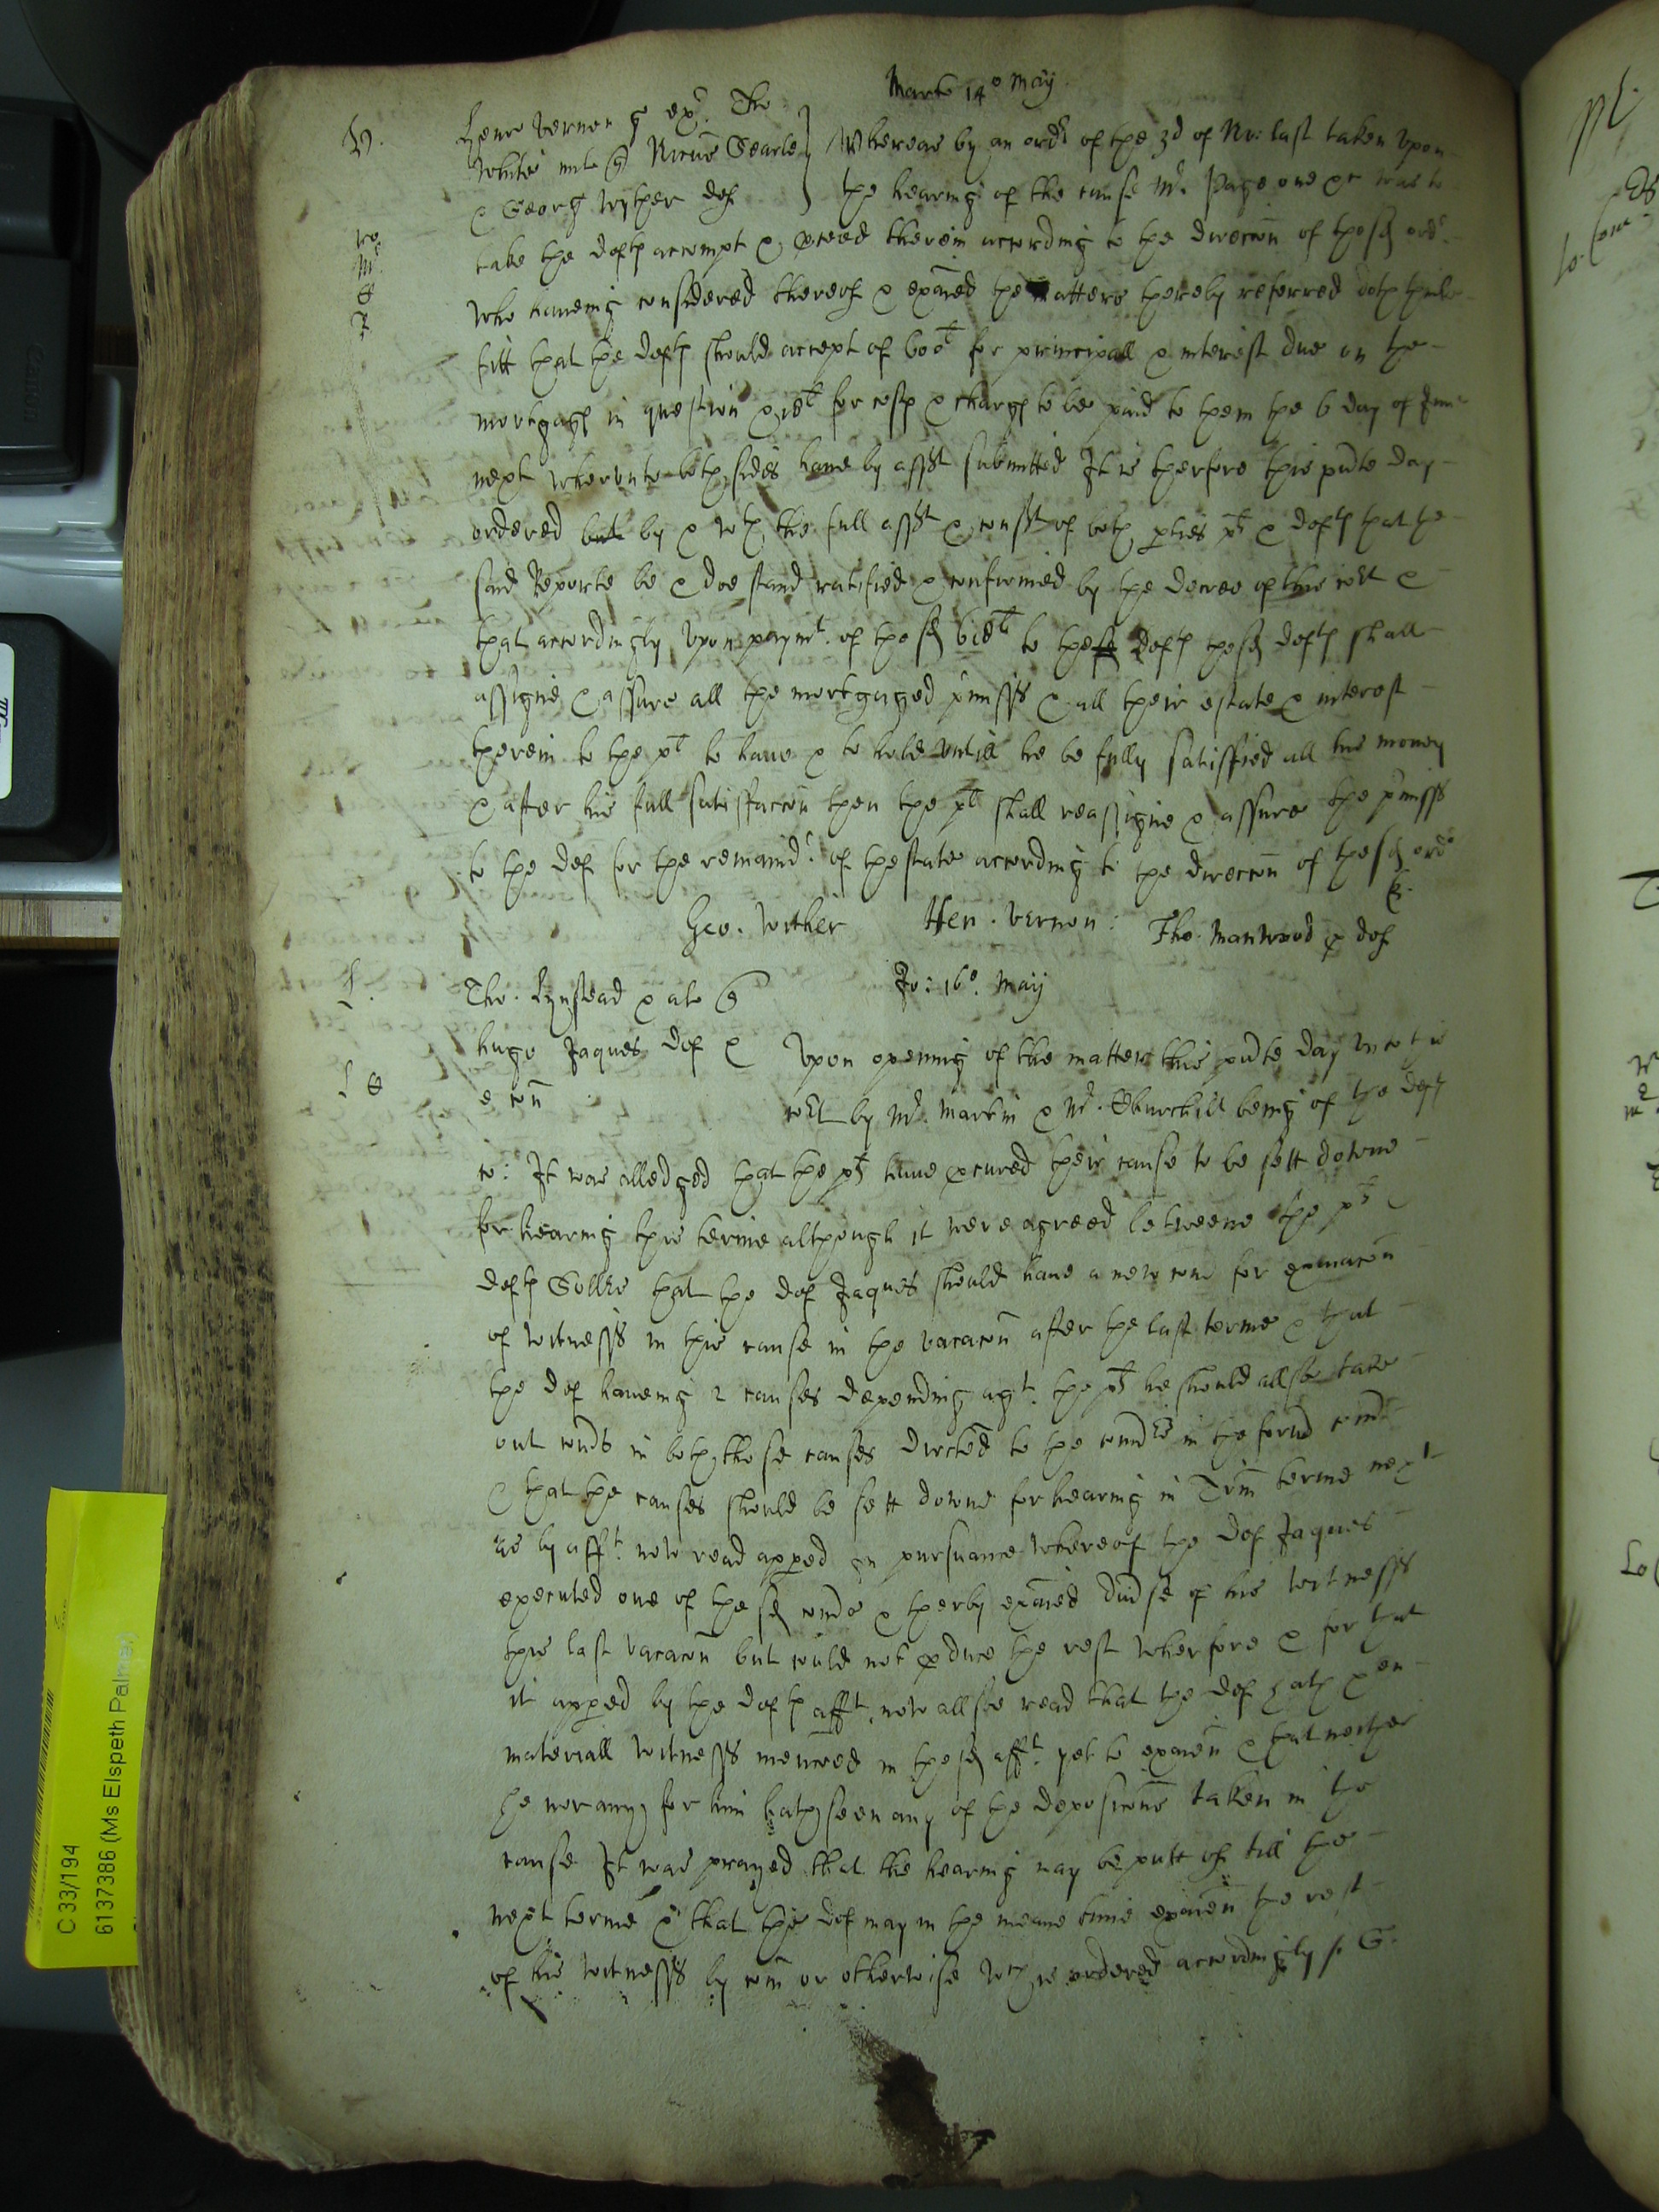 Marte 14o May
V. Henr Vernon q ex. Tho
White mil q Nichus Searle } Whereas by an ordr of the 3d of Nov: last taken upon
& Georg Wyther def } the hearing of the cause Mr. Page one &c was to
take the defts accompt & pceed therein according to the direccon of the sd ordr
who haveing considered thereof & exaied the matters thereby referred doth thinke
fitt that the defts should accept of 600l for principall & interest due on the
mortgage in question & 18l for costs & charges to be paid to them the 6 day of June
next wherunto both sides have by assent submitted It is therfore this pnte day
ordered but by & wth the full assent & consent of both pties plt & defts that the
said Reporte be & doe stand ratified & confirmed by the decree of this cort &
that accordingly upon paymt. of the sd 618l to the sd defts the sd defts shall
assigne & assure all the mortgaged pmisses & all their estate & interest
therein to the plt to have & to hold untill he be fully satisfied all his money
& after his full satisfaccon then the plt shall reassigne & assure the pmisses
to the def for the remaindr. of the state according to the direccon of the sd ordr
Geo. Wither Hen. Vernon: Tho. Manwood p def
L. Tho. Lynstead & als q Jo: 16o. May
Hugo Jaques def & Upon opening of the matter this pnte day unto this
e con cort by Mr. Martin & Mr. Churchill being of the defts
co: It was alledged that the plts have pcured their cause to be sett downe
for hearing this terme although it were agreed betweene the plts
defts Sollrs that the def Jaques should have a new com for exaiacon
of witnesses in this cause in the vacacon after the last terme & that
the def haveing 2 causes depending agt. the plts he should allsoe take
out coms in both those causes directed to the comrs in the former com
& that the causes should be sett downe for hearing in Trin terme next
as by afft. now read apped in pursuance whereof the def Jaques
executed one of the sd coms & therby exaied divse of his witnesses
this last vacacon but could not pduce the rest wherfore & for that
it apped by the defts afft. now allsoe read that the def hath
materiall witnesses menconed in the sd afft. yet to exaien & that neither
he nor any for him hath seen any of the deposicons taken in the
cause It was prayed that the hearing may be putt of till the
next terme & that the def may in the meane time exaien the rest
of his witnesses by com or otherwise wch is ordered accordingly
C 33/194
6137386 (Ms Elspeth Palmer)
Canon